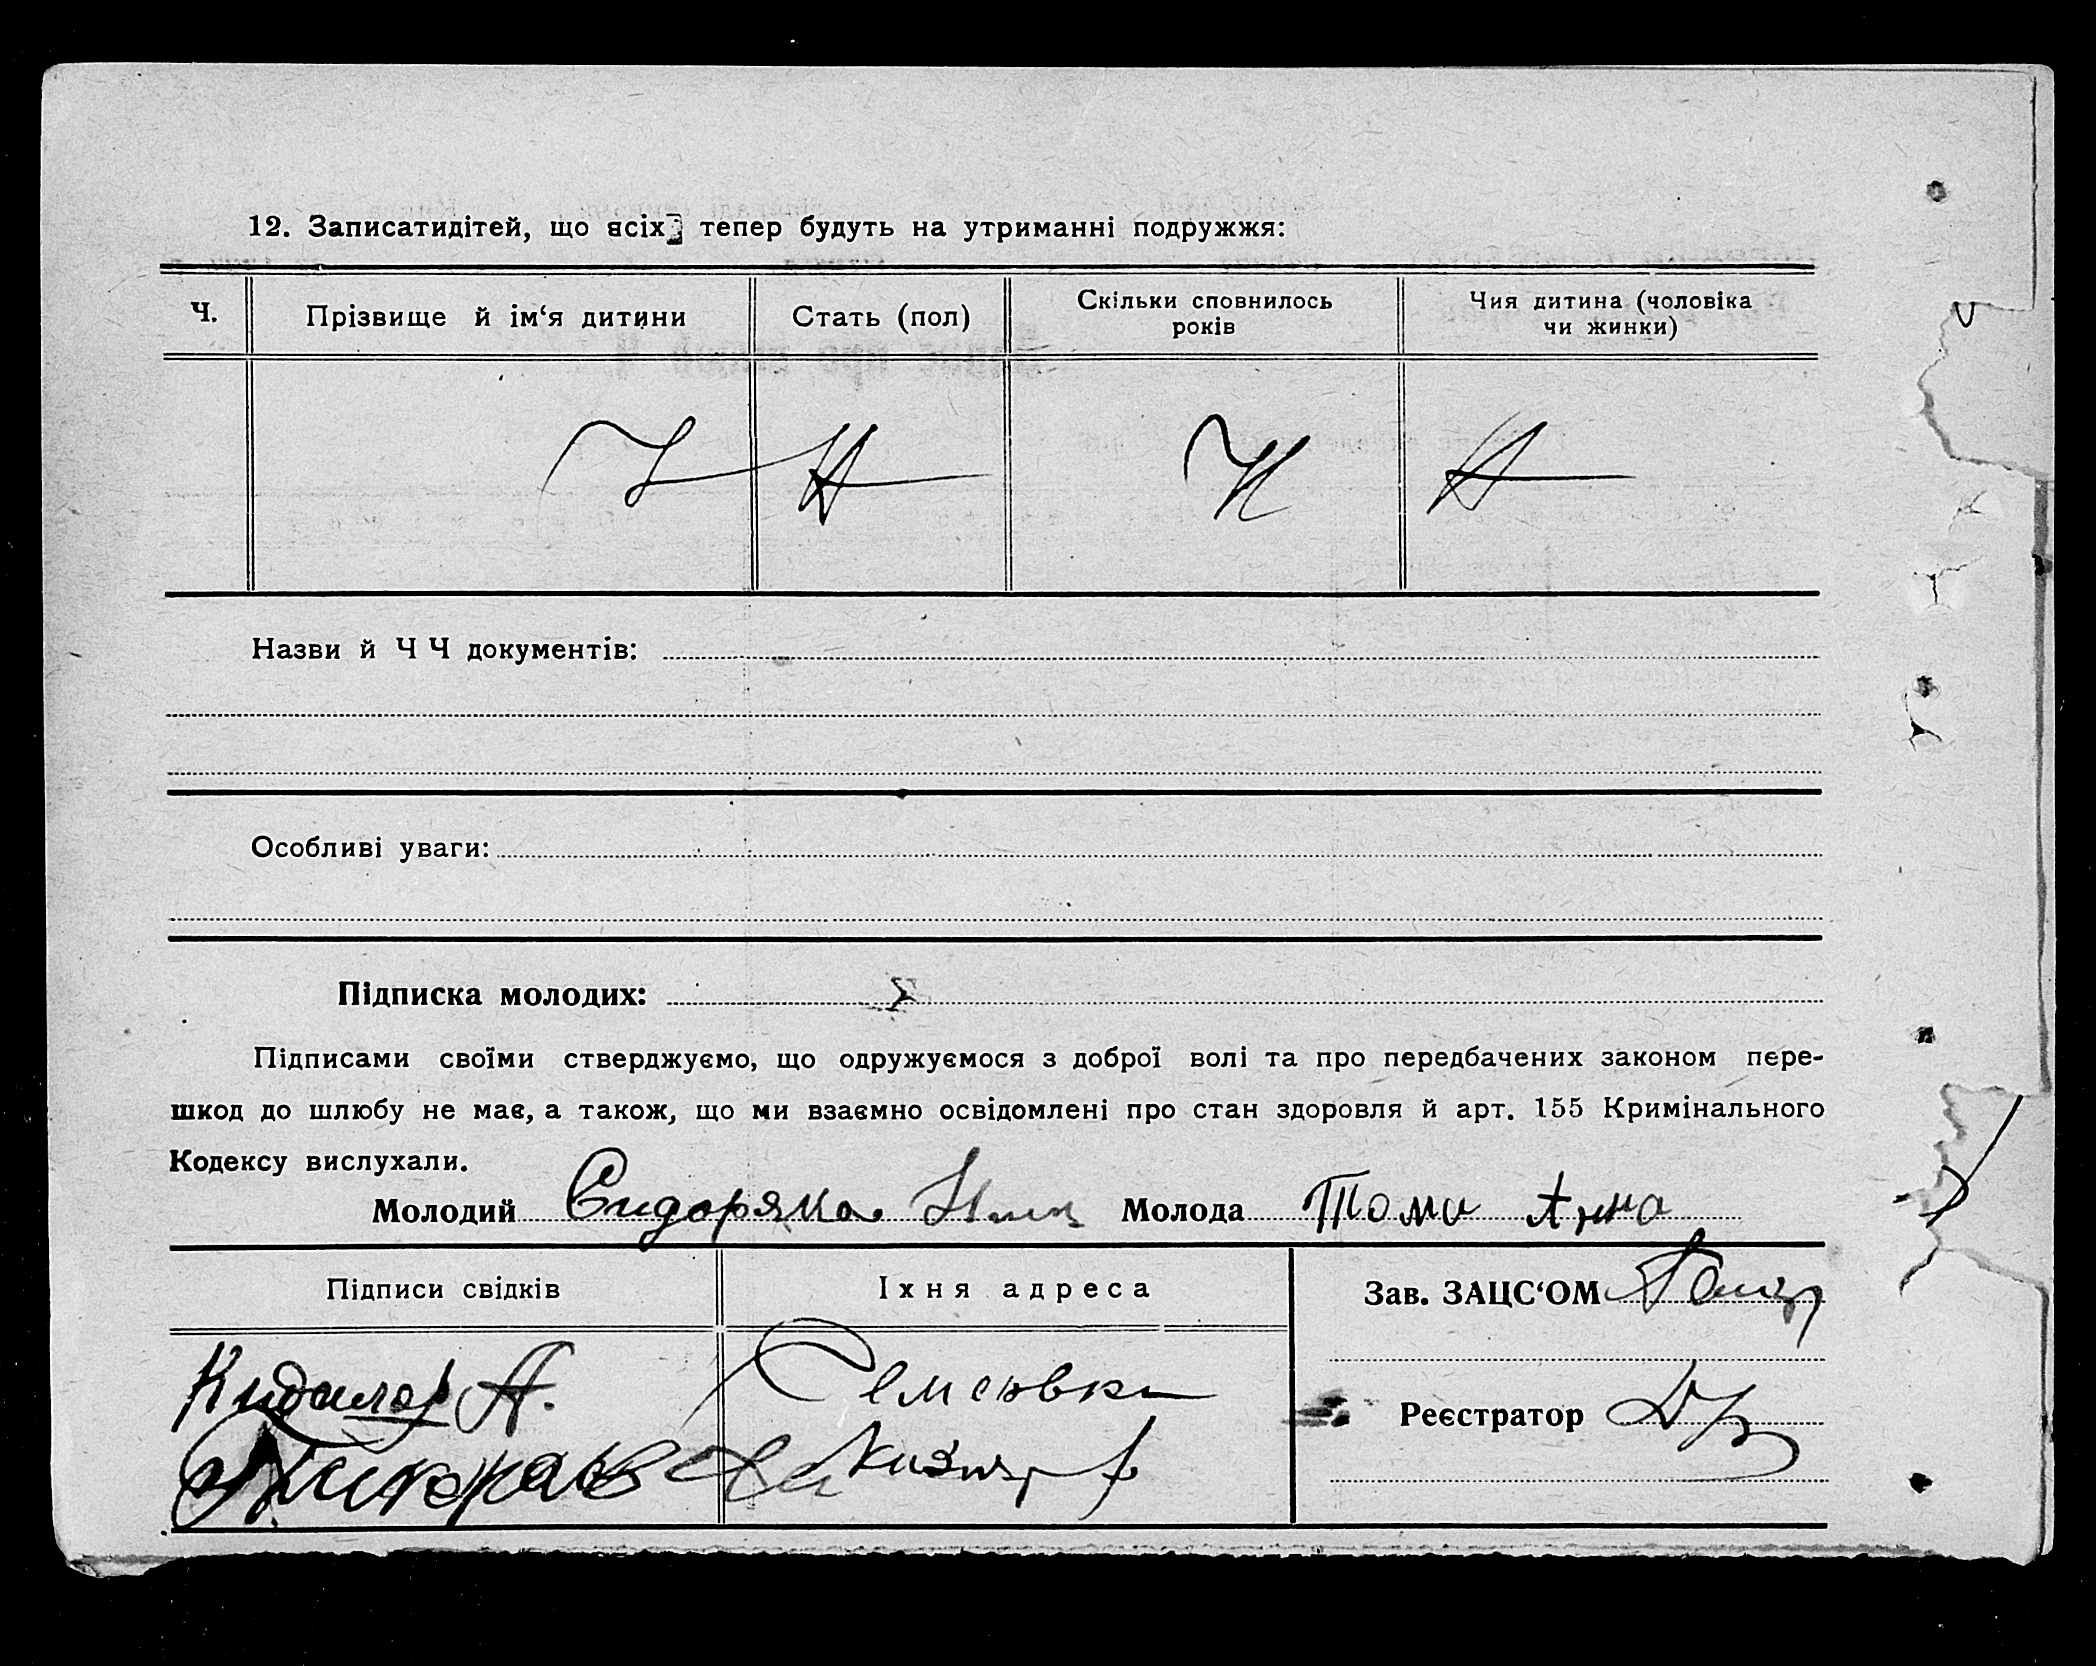 12. Записатидітей, що всіх тепер будуть на утриманні подружжя:
Ч.
Прізвище й ім‘я дитини
Стать (пол)
Скільки сповнилось
років
Чия дитина (чоловіка
чи жинки)
Назви й Ч Ч документів:
Особливі уваги:
Підписка молодих:
Підписами своїми стверджуємо, що одружуємося з доброї волі та про передбачених законом пере-
шкод до шлюбу не має, а також, що ми взаємно освідомлені про стан здоровля й арт. 155 Кримінального
Кодексу вислухали.
Молодий Сидоряка Молода Тома Анна
Підписи свідків
Іхня адреса
Зав. ЗАЦС‘ОМ
А.
Реєстратор